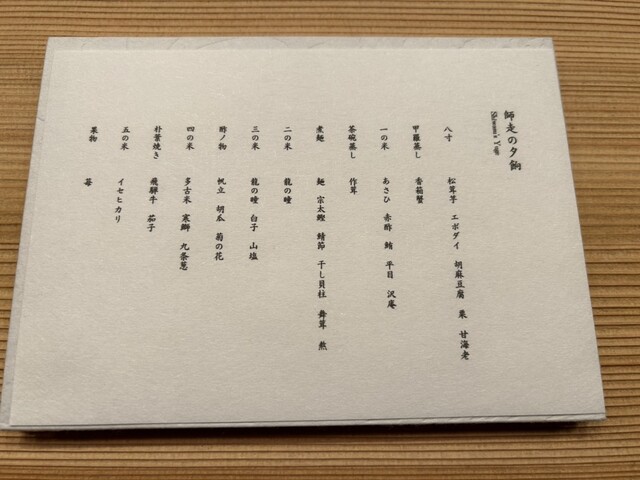 師走の夕餉
Shiwasu's Yuge
八寸 松茸芋 エボダイ 胡麻豆腐 栗 甘海老
甲羅蒸し 香箱蟹
一の米 あさひ 赤酢 鮪 平目 沢庵
茶碗蒸し 作茸
煮麺 麺 宗太鰹 鯖節 干し貝柱 舞茸 葱
二の米 龍の瞳
三の米 龍の瞳 白子 山塩
酢ノ物 帆立 胡瓜 菊の花
四の米 多古米 寒鰤 九条葱
朴葉焼き 飛騨牛 茄子
五の米 イセヒカリ
果物 苺